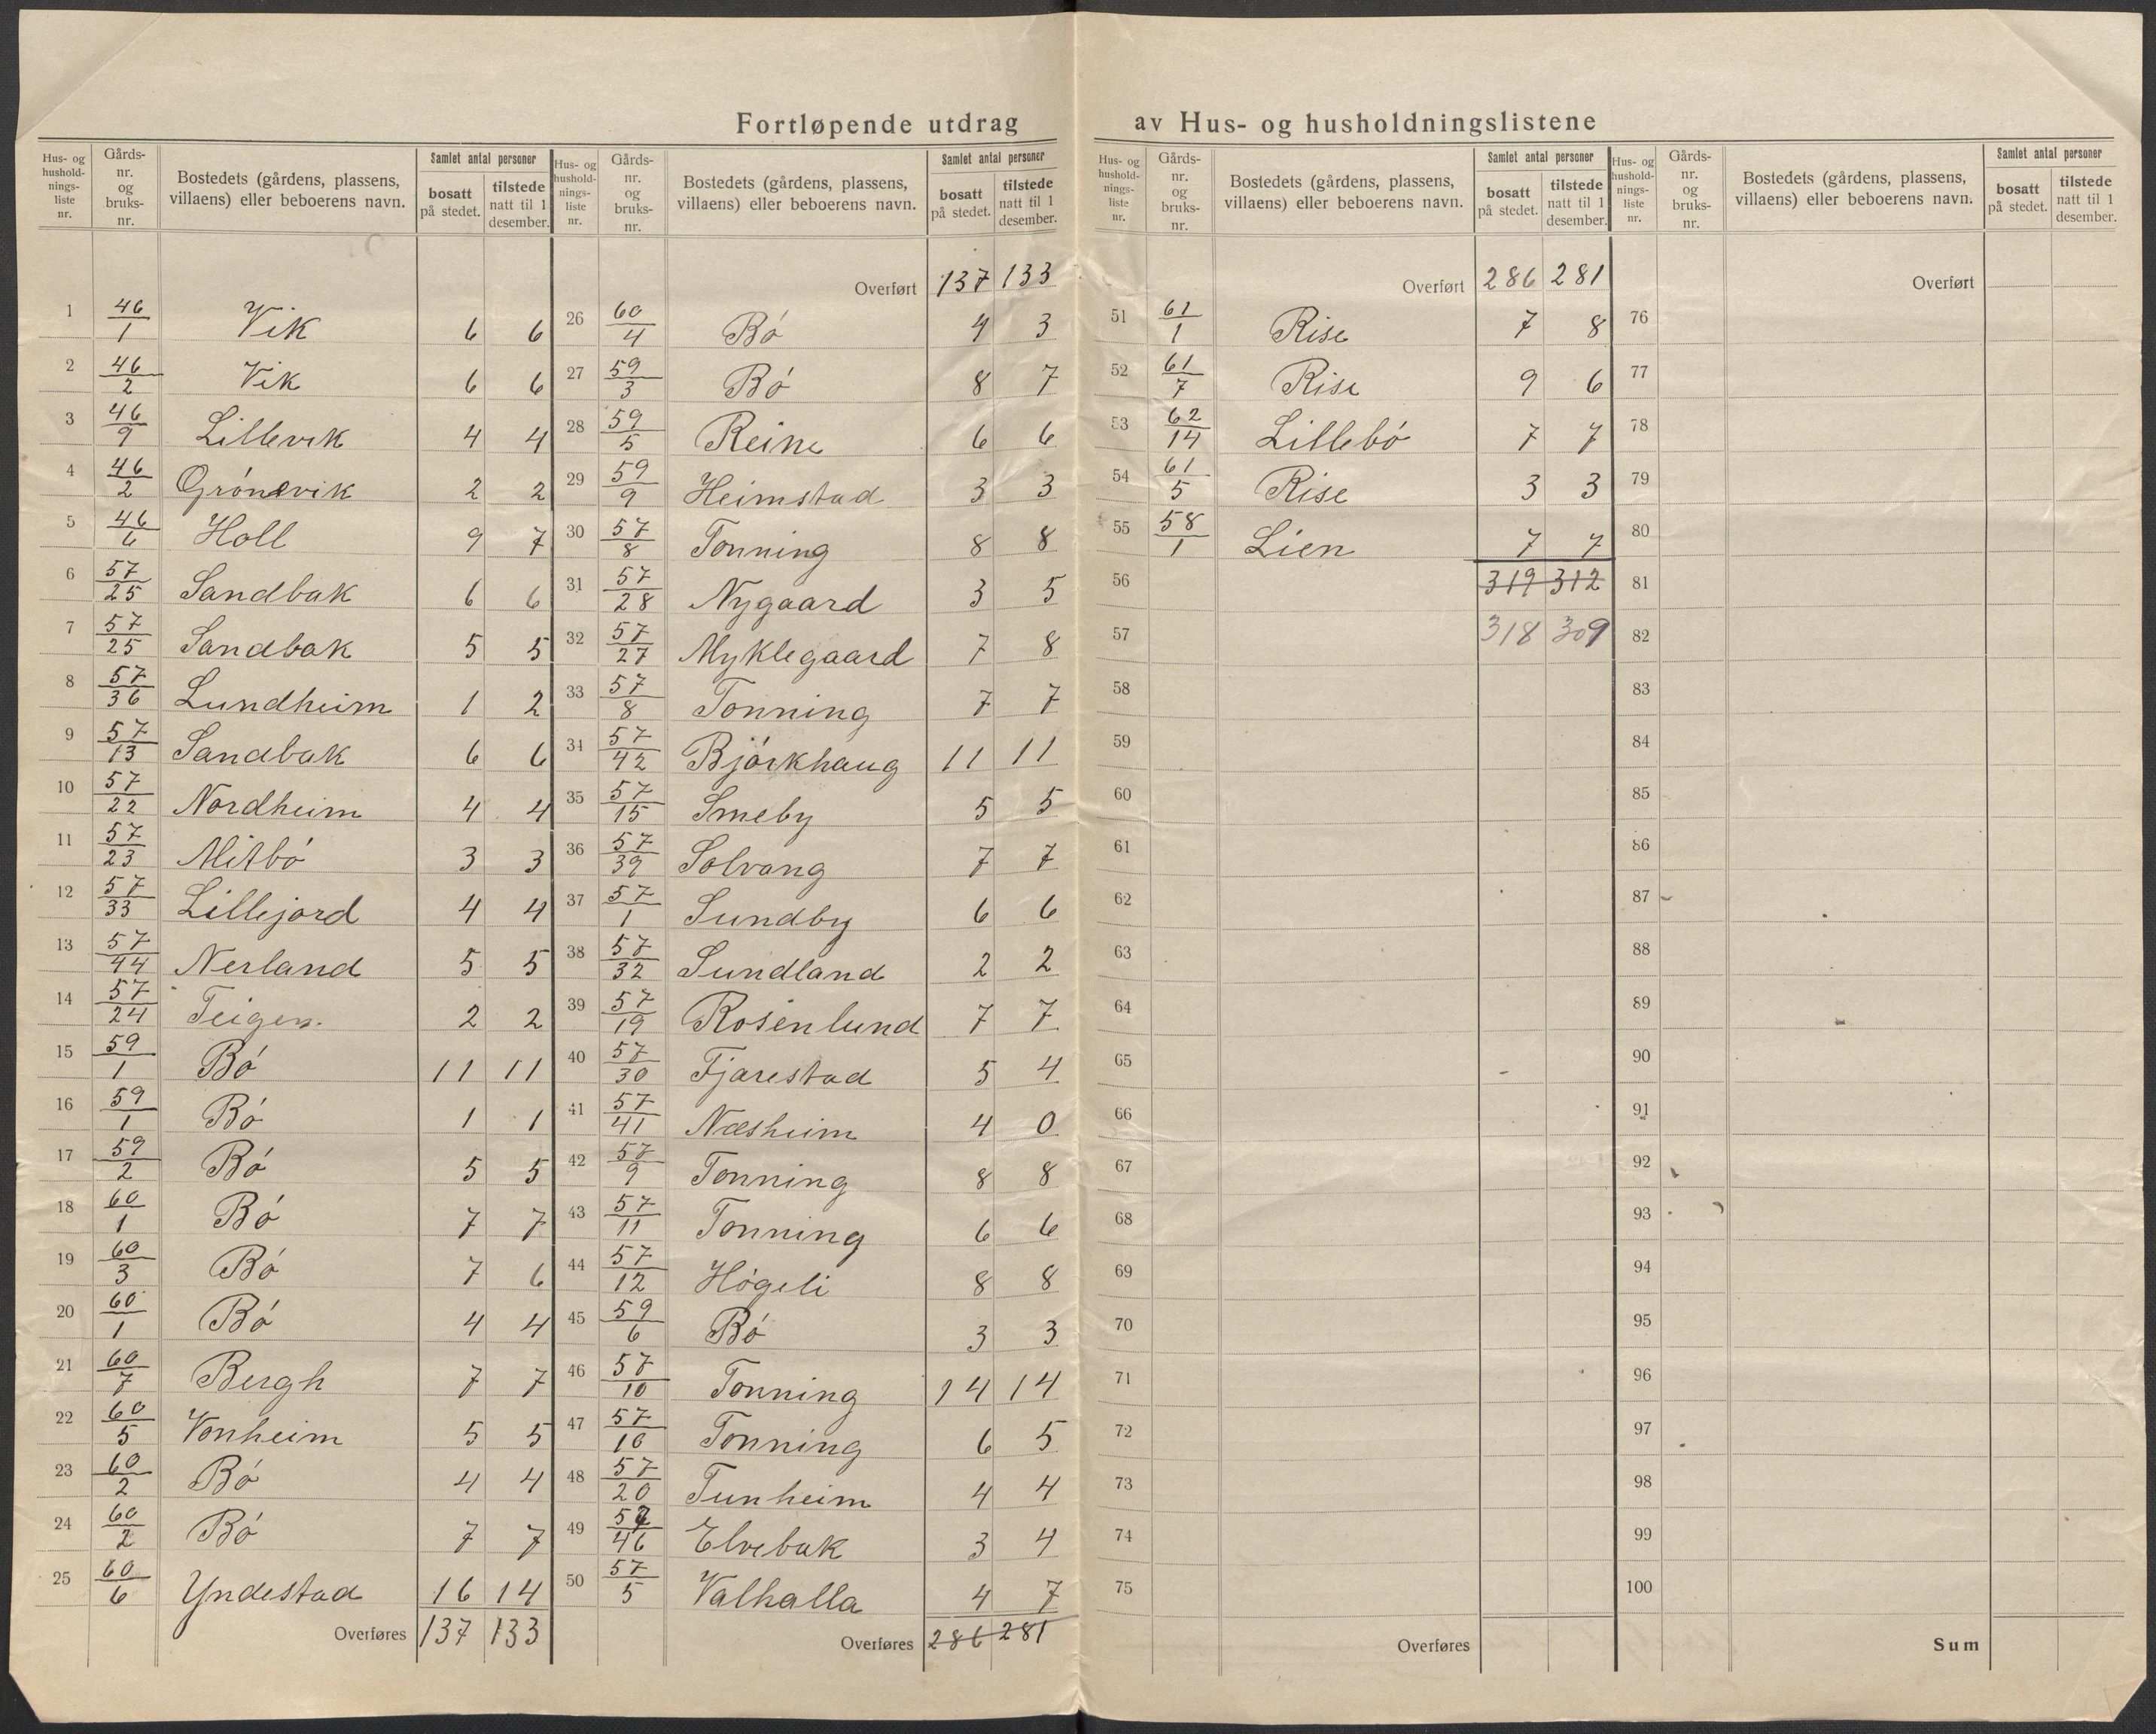 Fortløpende utdrag av Hus- og husholdningslistene
Hus- og husholdnings-liste nr. Gårds-nr. og bruks-nr. Bostedets (gårdens, plassens, villaens) eller beboerens navn. Samlet antal personer bosatt på stedet. tilstede natt til 1 desember.
1 46/1 Vik 6 6
2 46/2 Vik 6 6
3 46/9 Lillevik 4 4
4 46/2 Grónevik 2 2
5 46/6 Holl 9 7
6 57/25 Sandbak 6 6
7 57/25 Sandbak 5 5
8 57/36 Lundheim 1 2
9 57/13 Sandbak 6 6
10 57/22 Nordheim 4 4
11 57/23 Mitbó 3 3
12 57/33 Lillejord 4 4
13 57/44 Nerland 5 5
14 57/24 Teigen 2 2
15 59/1 Bó 11 11
16 59/1 Bó 1 1
17 59/2 Bó 5 5
18 60/1 Bó 7 7
19 60/3 Bó 7 6
20 60/1 Bó 4 4
21 60/7 Bergh 7 7
22 60/5 Vonheim 5 5
23 60/2 Bó 4 4
24 60/2 Bó 7 7
25 60/6 Yndestad 16 14
Overføres 137 133
Hus- og hushold-nings-liste nr. Gårds-nr. og bruks-nr. Bostedets (gårdens, plassens, villaens) eller beboerens navn. Samlet antal personer bosatt på stedet. tilstede natt til 1 desember.
Overført 137 133
26 60/4 Bó 4 3
27 59/3 Bó 8 7
28 59/5 Reine 6 6
29 59/9 Heimstad 3 3
30 57/8 Tonning 8 8
31 57/28 Nygaard 3 5
32 57/27 Myklegaard 7 8
33 57/8 Tonning 7 7
34 57/42 Bjórkhaug 11 11
35 57/15 Smeby 5 5
36 57/39 Solvang 7 7
37 57/1 Sundby 6 6
38 57/32 Sundland 2 2
39 57/19 Rosenlund 7 7
40 57/30 Fjarestad 5 4
41 57/41 Næsheim 4 0
42 57/9 Tonning 8 8
43 57/11 Tonning 6 6
44 57/12 Högeli 8 8
45 59/6 Bó 3 3
46 57/10 Tonning 14 14
47 57/10 Tonning 6 5
48 57/20 Tunheim 4 4
49 57/46 Elvebak 3 4
50 57/5 Valhalla 4 7
Overføres 286 281
Hus- og hushold-nings-liste nr. Gårds-nr. og bruks-nr. Bostedets (gårdens, plassens, villaens) eller beboerens navn. Samlet antal personer bosatt på stedet. tilstede natt til 1 desember.
Overført 286 281
51 61/1 Rise 7 8
52 61/7 Rise 9 6
53 62/14 Lillebó 7 7
54 61/5 Rise 3 3
55 58/1 Lien 7 7
56 319 312
57 318 309
58
59
60
61
62
63
64
65
66
67
68
69
70
71
72
73
74
75
Overføres
Hus- og hushold-nings-liste nr. Gårds-nr. og bruks-nr. Bostedets (gårdens, plassens, villaens) eller beboerens navn. Samlet antal personer bosatt på stedet. tilstede natt til 1 desember.
Overført
76
77
78
79
80
81
82
83
84
85
86
87
88
89
90
91
92
93
94
95
96
97
98
99
100
Sum